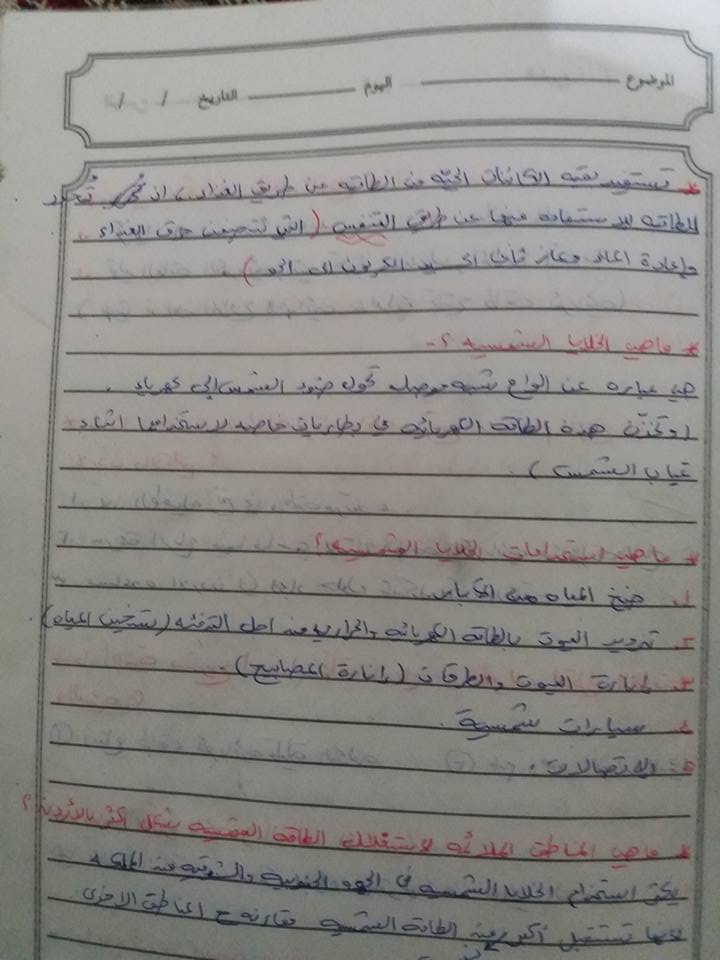 الموضوع اليوم التاريخ / /
* تستفيد بقية الكائنات الحية من الطاقة عن طريق الغذاء، اذ
الطاقه للاستفاده منها عن طريق التنفس (التي تتضمن حرق الغذاء
وإعادة الماء وغاز ثاني اكسيد الكربون الى الجو)
* ماهي الخلايا الشمسيه ؟-
هي عباره عن الواح شبه موصله تحول ضوء الشمس إلى كهرباء .
(وتخزن هذه الطاقه الكهربائيه في بطاريات خاصه لاستخدامها اثناء
غياب الشمس).
* ماهي استخدامات الخلايا الشمسيه؟
1. ضخ المياه من الآبار
2. تزويد البيوت بالطاقه الكهربائيه والحراريه من اجل التدفئه (تسخين المياه)
3. إنارة البيوت والطرقات (إنارة المصابيح).
4. سيارات شمسية .
5. الاتصالات .
* ماهي المناطق الملائمه لاستغلال الطاقه الشمسيه بشكل أكثر بالأردن؟
يمكن استخدام الخلايا الشمسيه في الجهه الجنوبيه والشرقيه من المملكه
لانها تستقبل أكبر الطاقه الشمسيه مقارنه مع المناطق الاخرى